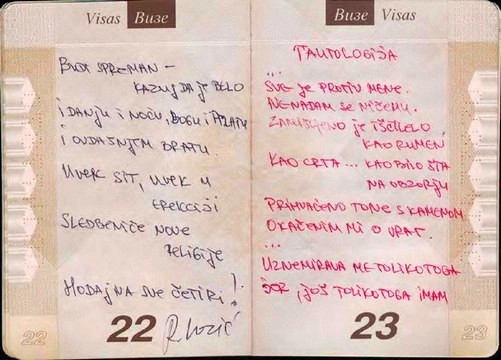 Visas Визе
BUDI SPREMAN –
KAZUJ DA JE BELO
I DANJU I NOĆU, BOGU I
I BRATU.
UVEK SIT, UVEK U
EREKCIJI
SLEDBENIČE NOVE
RELIGIJE
HODAJ NA SVE ČETIRI!
22
22
Визе Visas
TAUTOLOGIJA
...
SVE JE PROTIV MENE.
NE NADAM SE NIČEMU.
ZAMIŠLJENO JE IŠČILELO
KAO RUMEN
KAO CRTA ... KAO BILO ŠTA
NA OBZORJU
PRIHVAĆENO TONE S KAMENOM
OKAČENIM MI O VRAT.
...
UZNEMIRAVA ME TOLIKOTOGA
JER, JOŠ TOLIKOTOGA IMAM
23
23